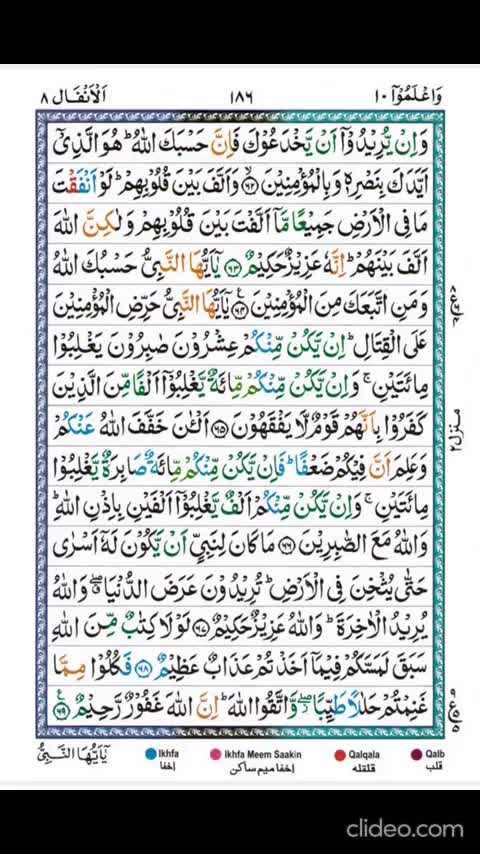 وَاعْلَمُوْٓا ١٠ ١٨٦ اَلْاَنْفَال ٨
وَاِنْ يُّرِيْدُوْٓا اَنْ يَّخْدَعُوْكَ فَاِنَّ حَسْبَكَ اللّٰهُ ؕ هُوَ الَّذِىْۤ
اَيَّدَكَ بِنَصْرِهٖ وَبِالْمُؤْمِنِيْنَ ۙ‏﴿۶۲﴾ وَاَلَّفَ بَيْنَ قُلُوْبِهِمْ ؕ لَوْ اَنْفَقْتَ
مَا فِى الْاَرْضِ جَمِيْعًا مَّاۤ اَلَّفْتَ بَيْنَ قُلُوْبِهِمْ وَلٰكِنَّ اللّٰهَ
اَلَّفَ بَيْنَهُمْ ؕ اِنَّهٗ عَزِيْزٌ حَكِيْمٌ ﴿۶۳﴾ يٰۤاَيُّهَا النَّبِىُّ حَسْبُكَ اللّٰهُ
وَمَنِ اتَّبَعَكَ مِنَ الْمُؤْمِنِيْنَ ﴿۶۴﴾ يٰۤاَيُّهَا النَّبِىُّ حَرِّضِ الْمُؤْمِنِيْنَ
عَلَى الْقِتَالِ ؕ اِنْ يَّكُنْ مِّنْكُمْ عِشْرُوْنَ صٰبِرُوْنَ يَغْلِبُوْا
مِائَتَيْنِ ۚ وَاِنْ يَّكُنْ مِّنْكُمْ مِّائَةٌ يَّغْلِبُوْۤا اَلْفًا مِّنَ الَّذِيْنَ
كَفَرُوْا بِاَنَّهُمْ قَوْمٌ لَّا يَفْقَهُوْنَ ﴿۶۵﴾ اَلْـٰٔنَ خَفَّفَ اللّٰهُ عَنْكُمْ
وَعَلِمَ اَنَّ فِيْكُمْ ضَعْفًا ؕ فَاِنْ يَّكُنْ مِّنْكُمْ مِّائَةٌ صَابِرَةٌ يَّغْلِبُوْا
مِائَتَيْنِ ۚ وَاِنْ يَّكُنْ مِّنْكُمْ اَلْفٌ يَّغْلِبُوْۤا اَلْفَيْنِ بِاِذْنِ اللّٰهِ ؕ
وَاللّٰهُ مَعَ الصّٰبِرِيْنَ ﴿۶۶﴾ مَا كَانَ لِنَبِىٍّ اَنْ يَّكُوْنَ لَهٗۤ اَسْرٰى
حَتّٰى يُثْخِنَ فِى الْاَرْضِ ؕ تُرِيْدُوْنَ عَرَضَ الدُّنْيَا ۖ وَاللّٰهُ
يُرِيْدُ الْاٰخِرَةَ ؕ وَاللّٰهُ عَزِيْزٌ حَكِيْمٌ ﴿۶۷﴾ لَوْلَا كِتٰبٌ مِّنَ اللّٰهِ
سَبَقَ لَمَسَّكُمْ فِيْمَاۤ اَخَذْتُمْ عَذَابٌ عَظِيْمٌ ﴿۶۸﴾ فَكُلُوْا مِمَّا
غَنِمْتُمْ حَلٰلًا طَيِّبًا ۖ وَّاتَّقُوا اللّٰهَ ؕ اِنَّ اللّٰهَ غَفُوْرٌ رَّحِيْمٌ ﴿۶۹﴾
منزل ٢
يٰۤاَيُّهَا النَّبِىُّ
Ikhfa Ikhfa Meem Saakin Qalqala Qalb
اخفا اخفا میم ساکن قلقلہ قلب
clideo.com